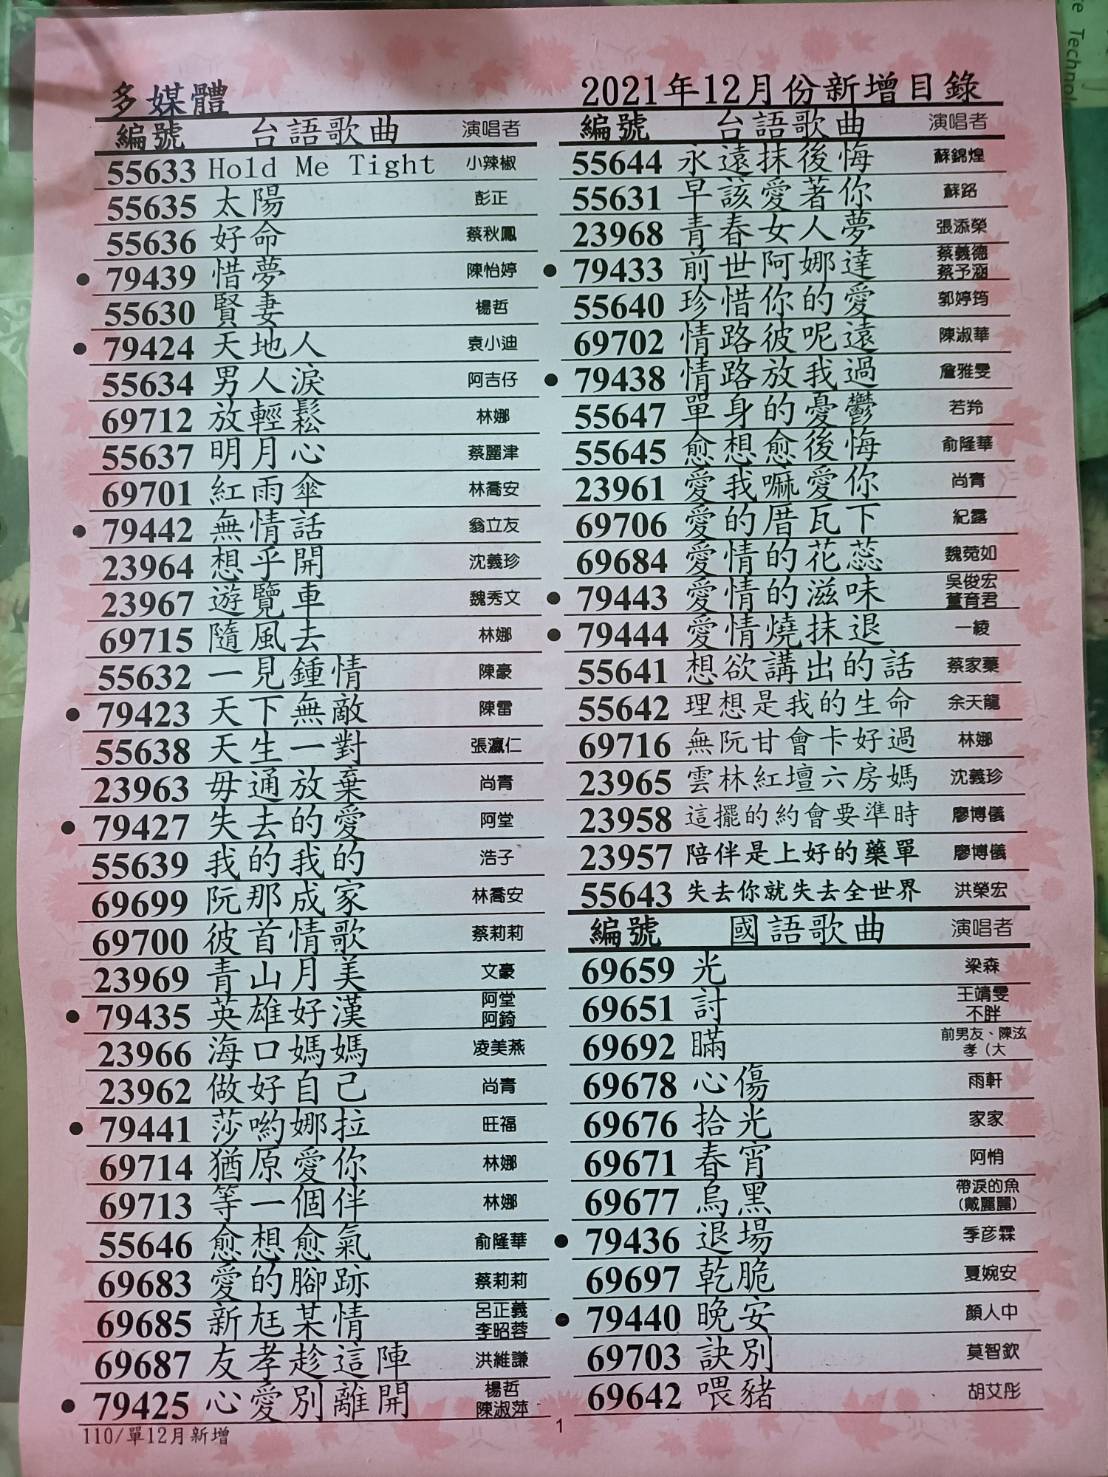 多媒體
2021年12月份新增目錄
編號 台語歌曲 演唱者
55633 Hold Me Tight 小辣椒
55635 太陽 彭正
55636 好命 蔡秋鳳
● 79439 惜夢 陳怡婷
55630 賢妻 楊哲
● 79424 天地人 袁小迪
55634 男人淚 阿吉仔
69712 放輕鬆 林娜
55637 明月心 蔡麗津
69701 紅雨傘 林喬安
● 79442 無情話 翁立友
23964 想乎開 沈義珍
23967 遊覽車 魏秀文
69715 隨風去 林娜
55632 一見鍾情 陳豪
● 79423 天下無敵 陳雷
55638 天生一對 張瀛仁
23963 毋通放棄 尚青
● 79427 失去的愛 阿堂
55639 我的我的 浩子
69699 阮那成家 林喬安
69700 彼首情歌 蔡莉莉
23969 青山月美 文豪
● 79435 英雄好漢 阿堂
阿錡
23966 海口媽媽 凌美燕
23962 做好自己 尚青
● 79441 莎喲娜拉 旺福
69714 猶原愛你 林娜
69713 等一個伴 林娜
55646 愈想愈氣 俞隆華
69683 愛的腳跡 蔡莉莉
69685 新尪某情 呂正義
李昭蓉
69687 友孝趁這陣 洪維謙
● 79425 心愛別離開 楊哲
陳淑萍
110/單12月新增
編號 台語歌曲 演唱者
55644 永遠抹後悔 蘇錦煌
55631 早該愛著你 蘇路
23968 青春女人夢 張添榮
● 79433 前世阿娜達 蔡義德
蔡予涵
55640 珍惜你的愛 郭婷筠
69702 情路彼呢遠 陳淑華
● 79438 情路放我過 詹雅雯
55647 單身的憂鬱 若羚
55645 愈想愈後悔 俞隆華
23961 愛我嘛愛你 尚青
69706 愛的厝瓦下 紀露
69684 愛情的花蕊 魏菀如
● 79443 愛情的滋味 吳俊宏
董育君
● 79444 愛情燒抹退 一綾
55641 想欲講出的話 蔡家蓁
55642 理想是我的生命 余天龍
69716 無阮甘會卡好過 林娜
23965 雲林紅壇六房媽 沈義珍
23958 這擺的約會要準時 廖博儀
23957 陪伴是上好的藥單 廖博儀
55643 失去你就失去全世界 洪榮宏
編號 國語歌曲 演唱者
69659 光 梁森
69651 討 王靖雯
不胖
69692 瞞 前男友、陳泫
孝(大
69678 心傷 雨軒
69676 拾光 家家
69671 春宵 阿悄
69677 烏黑 帶淚的魚
(戴麗麗)
● 79436 退場 季彦霖
69697 乾脆 夏婉安
● 79440 晚安 顏人中
69703 訣別 莫智欽
69642 喂豬 胡艾彤
1